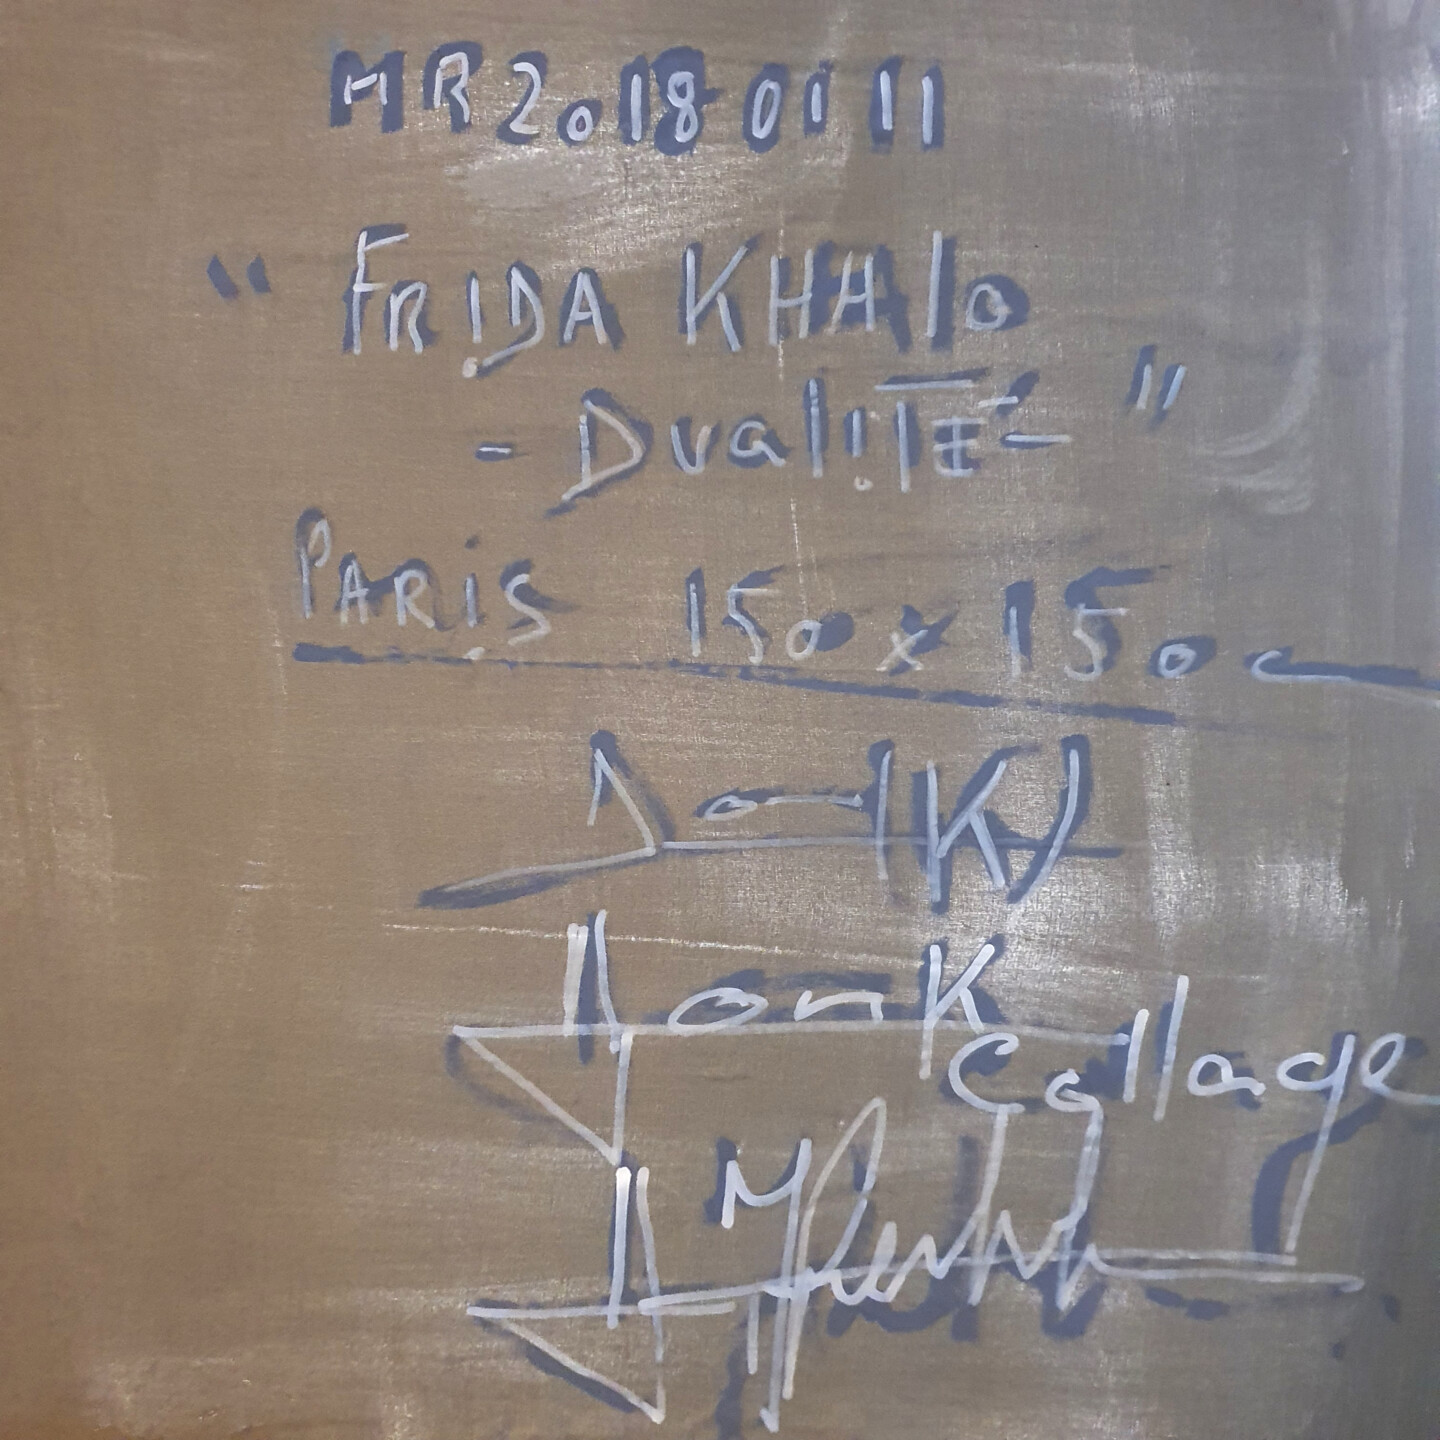 MR20180111
" FRIDA KHAlO
- DualiTÉ - "
PARiS 150 x 150 c
Don(K)
DonK
Collage